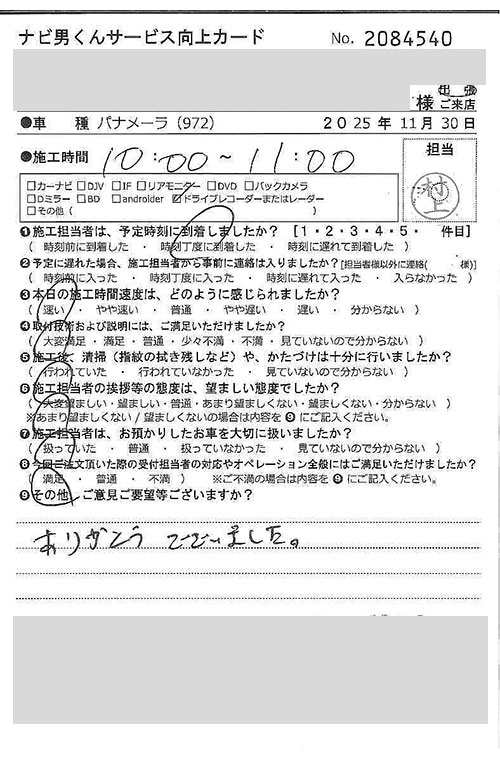 ナビ男くんサービス向上カード No. 2084540
出 張
様 ご来店
●車　種 パナメーラ (972) 2025年 11月 30日
●施工時間 10:00～11:00 担当
村上
□カーナビ □DJV □IF □リアモニター □DVD □バックカメラ
□Dミラー □BD □androider ☑ドライブレコーダーまたはレーダー
□その他 ( )
❶施工担当者は、予定時刻に到着しましたか？ [1・2・3・4・5・ 件目]
( 時刻前に到着した ・ 時刻丁度に到着した ・ 時刻に遅れて到着した )
❷予定に遅れた場合、施工担当者から事前に連絡は入りましたか？ [担当者様以外に連絡( 様)]
( 時刻前に入った ・ 時刻丁度に入った ・ 時刻に遅れて入った ・ 入らなかった )
❸本日の施工時間速度は、どのように感じられましたか？
( 速い ・ やや速い ・ 普通 ・ やや遅い ・ 遅い ・ 分からない )
❹取付技術および説明には、ご満足いただけましたか？
( 大変満足 ・ 満足 ・ 普通 ・ 少々不満 ・ 不満 ・ 見ていないので分からない )
❺施工後、清掃（指紋の拭き残しなど）や、かたづけは十分に行いましたか？
( 行われていた ・ 行われていなかった ・ 見ていないので分からない )
❻施工担当者の挨拶等の態度は、望ましい態度でしたか？
( 大変望ましい・望ましい・普通・あまり望ましくない・望ましくない・分からない )
※あまり望ましくない / 望ましくないの場合は内容を❾にご記入ください。
❼施工担当者は、お預かりしたお車を大切に扱いましたか？
( 扱っていた ・ 普通 ・ 扱っていなかった ・ 見ていないので分からない )
❽今回ご注文頂いた際の受付担当者の対応やオペレーション全般にはご満足いただけましたか？
( 満足 ・ 普通 ・ 不満 ) ※ご不満の場合は内容を❾にご記入ください。
❾その他、ご意見ご要望等ございますか？
ありがとうございました。